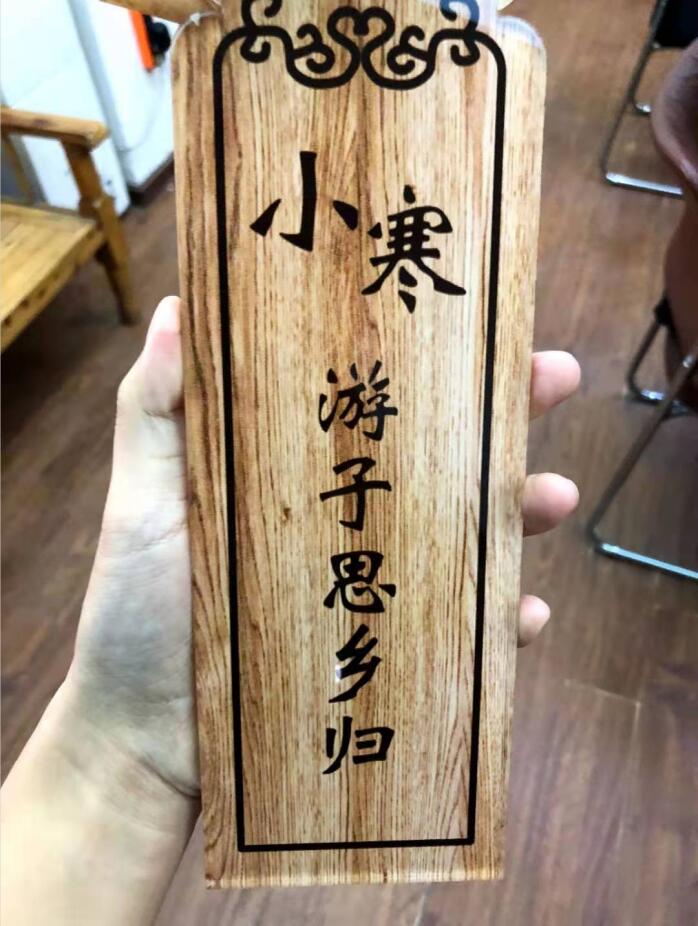 小寒
游子思乡归